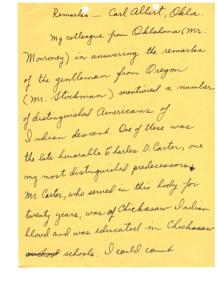 Remarks — Carl Albert, Okla.
My colleague from Oklahoma (Mr.
Monroney) in answering the remarks
of the gentleman from Oregon
(Mr. Stockman) mentioned a number
of distinguished Americans of
Indian descent. One of these was
the late honorable Charles D. Carter, one
my most distinguished predecessors.
Mr. Carter, who served in this body for
twenty years, was of Chickasaw Indian
blood and was educated in Chickasaw
schools. I could count